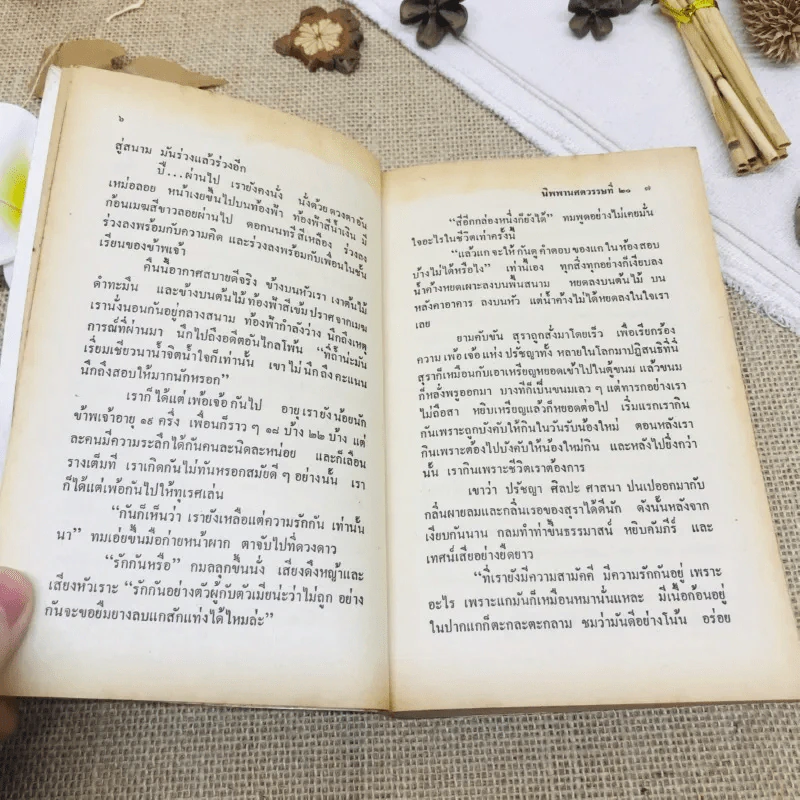 ๖
สู่สนาม มันร่วงแล้วร่วงอีก
ปี...ผ่านไป เรายังคงนั่ง นั่งด้วยดวงตาอัน
เหม่อลอย หน้าเงยขึ้นไปบนท้องฟ้า ท้องฟ้าสีน้ำเงิน มี
ก้อนเมฆสีขาวลอยผ่านไป ดอกนนทรีสีเหลือง ร่วงลง
ร่วงลงพร้อมกับความคิด และร่วงลงพร้อมกับเพื่อนในชั้น
เรียนของข้าพเจ้า
คืนนี้อากาศสบายดีจริง ข้างบนหัวเรา เงาต้นไม้
ดำทะมึน และข้างบนต้นไม้ ท้องฟ้าสีเข้ม ปราศจากเมฆ
เรานั่งนอนกันอยู่กลางสนาม ท้องฟ้ากำลังว่าง นึกถึงเหตุ
การณ์ที่ผ่านมา นึกไปถึงอดีตอันไกลโพ้น “ที่ถ้ำนะมัน
เรี่ยมเชียวนาน้ำจิตน้ำใจก็เท่านั้น เขาไม่นึกถึงคะแนน
นึกถึงสอบให้มากนักหรอก”
เราก็ได้แต่เพ้อเจ้อกันไป อายุเรายังน้อยนัก
ข้าพเจ้าอายุ ๑๙ ครึ่ง เพื่อนก็ราวๆ ๑๘ บ้าง ๒๒ บ้าง แต่
ละคนมีความระลึกได้กันคนละนิดละหน่อย และก็เลือน
รางเต็มที่ เราเกิดกันไม่ทันหรอกสมัยดีๆ อย่างนั้น เรา
ก็ได้แต่เพ้อกันไปให้ทุเรศเล่น
“กันก็เห็นว่า เรายังเหลือแต่ความรักกัน เท่านั้น
นา” ทมเอ่ยขึ้นมือก่ายหน้าผาก ตาจับไปที่ดวงดาว
“รักกันหรือ” กมลลุกขึ้นนั่ง เสียงดึงหญ้าและ
เสียงหัวเราะ “รักกันอย่างตัวผู้กับตัวเมียน่ะว่าไม่ถูก อย่าง
กันจะขอยืมยางลบแกสักแท่งได้ไหมล่ะ”
นิพพานศตวรรษที่ ๒๑ ๗
“สี่อีกกล่องหนึ่งก็ยังได้” ทมพูดอย่างไม่เคยมั่น
ใจอะไรในชีวิตเท่าครั้งนี้
“แล้วแกจะให้กันดูคำตอบของแกในห้องสอบ
บ้างไม่ได้หรือไง” เท่านี้เอง ทุกสิ่งทุกอย่างก็เงียบลง
น้ำค้างหยดเผาะลงบนพื้นสนาม หยดลงบนต้นไม้ บน
หลังคาอาคาร ลงบนหัว แต่น้ำค้างไม่ได้หยดลงในใจเรา
เลย
ยามคับขัน สุราถูกสั่งมาโดยเร็ว เพื่อเรียกร้อง
ความเพ้อเจ้อแห่งปรัชญาทั้งหลายในโลกมาปฏิสนธิที่นี่
สุราก็เหมือนกับเอาเหรียญหยอดเข้าไปในตู้ขนม แล้วขนม
ก็หลั่งพรูออกมา บางทีก็เป็นขนมเลวๆ แต่ทารกอย่างเรา
ไม่ถือสา หยิบเหรียญแล้วก็หยอดต่อไป เริ่มแรกเรากิน
กันเพราะถูกบังคับให้กินในวันรับน้องใหม่ ตอนหลังเรา
กินเพราะต้องไปบังคับให้น้องใหม่กิน และหลังไปยิ่งกว่า
นั้น เรากินเพราะชีวิตเราต้องการ
เขาว่า ปรัชญา ศิลปะ ศาสนา ปนเปออกมากับ
กลิ่นผายลมและกลิ่นเรอของสุราได้ดีนัก ดังนั้นหลังจาก
เงียบกันนาน กลมทำท่าขึ้นธรรมาสน์ หยิบคัมภีร์ และ
เทศน์เสียอย่างยืดยาว
“ที่เรายังมีความสามัคคี มีความรักกันอยู่ เพราะ
อะไร เพราะแกมันก็เหมือนหมานั่นแหละ มีเนื้อก้อนอยู่
ในปากแกก็ตะกละตะกลาม ชมว่ามันดีอย่างโน้น อร่อย